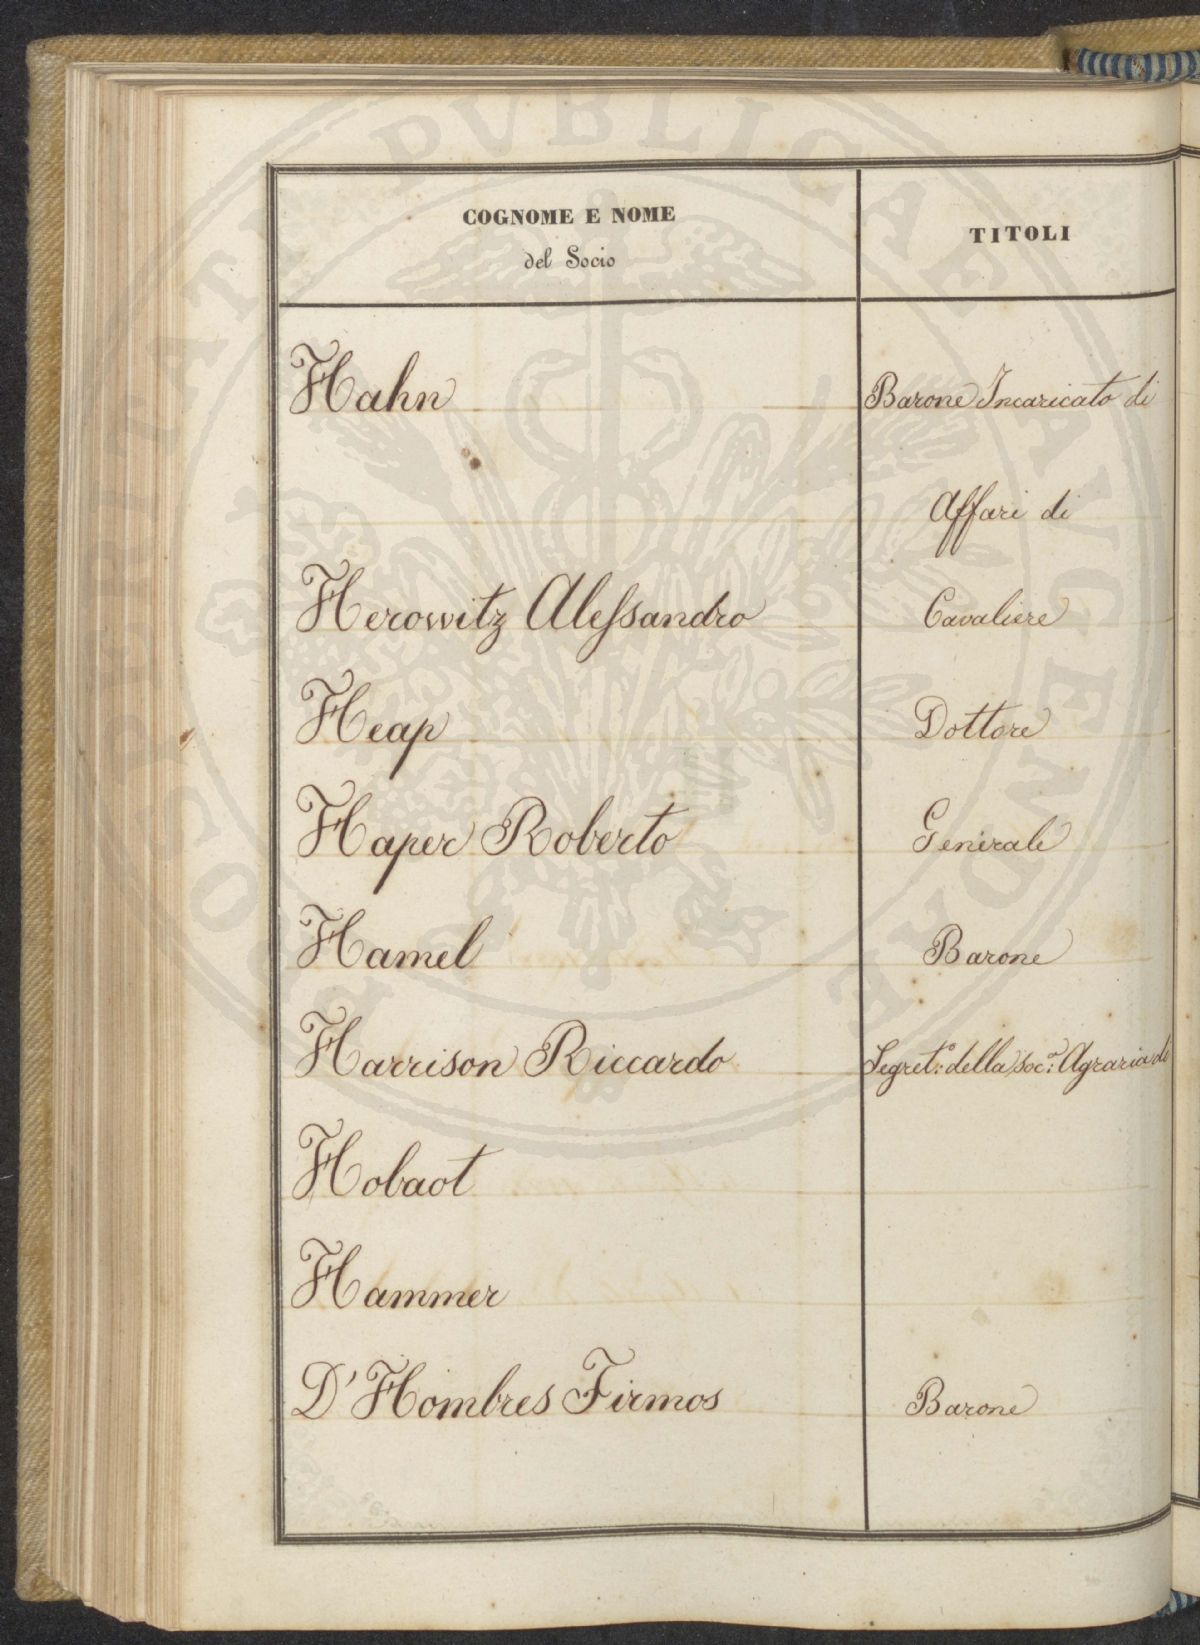 COGNOME E NOME
del Socio
TITOLI
Hahn Barone Incaricato di
Affari di
Herowitz Alessandro Cavaliere
Heap Dottore
Haper Roberto Generale
Hamel Barone
Harrison Riccardo Segret:º della soc:ª Agraria di
Hobaot
Hammer
D'Hombres Firmos Barone